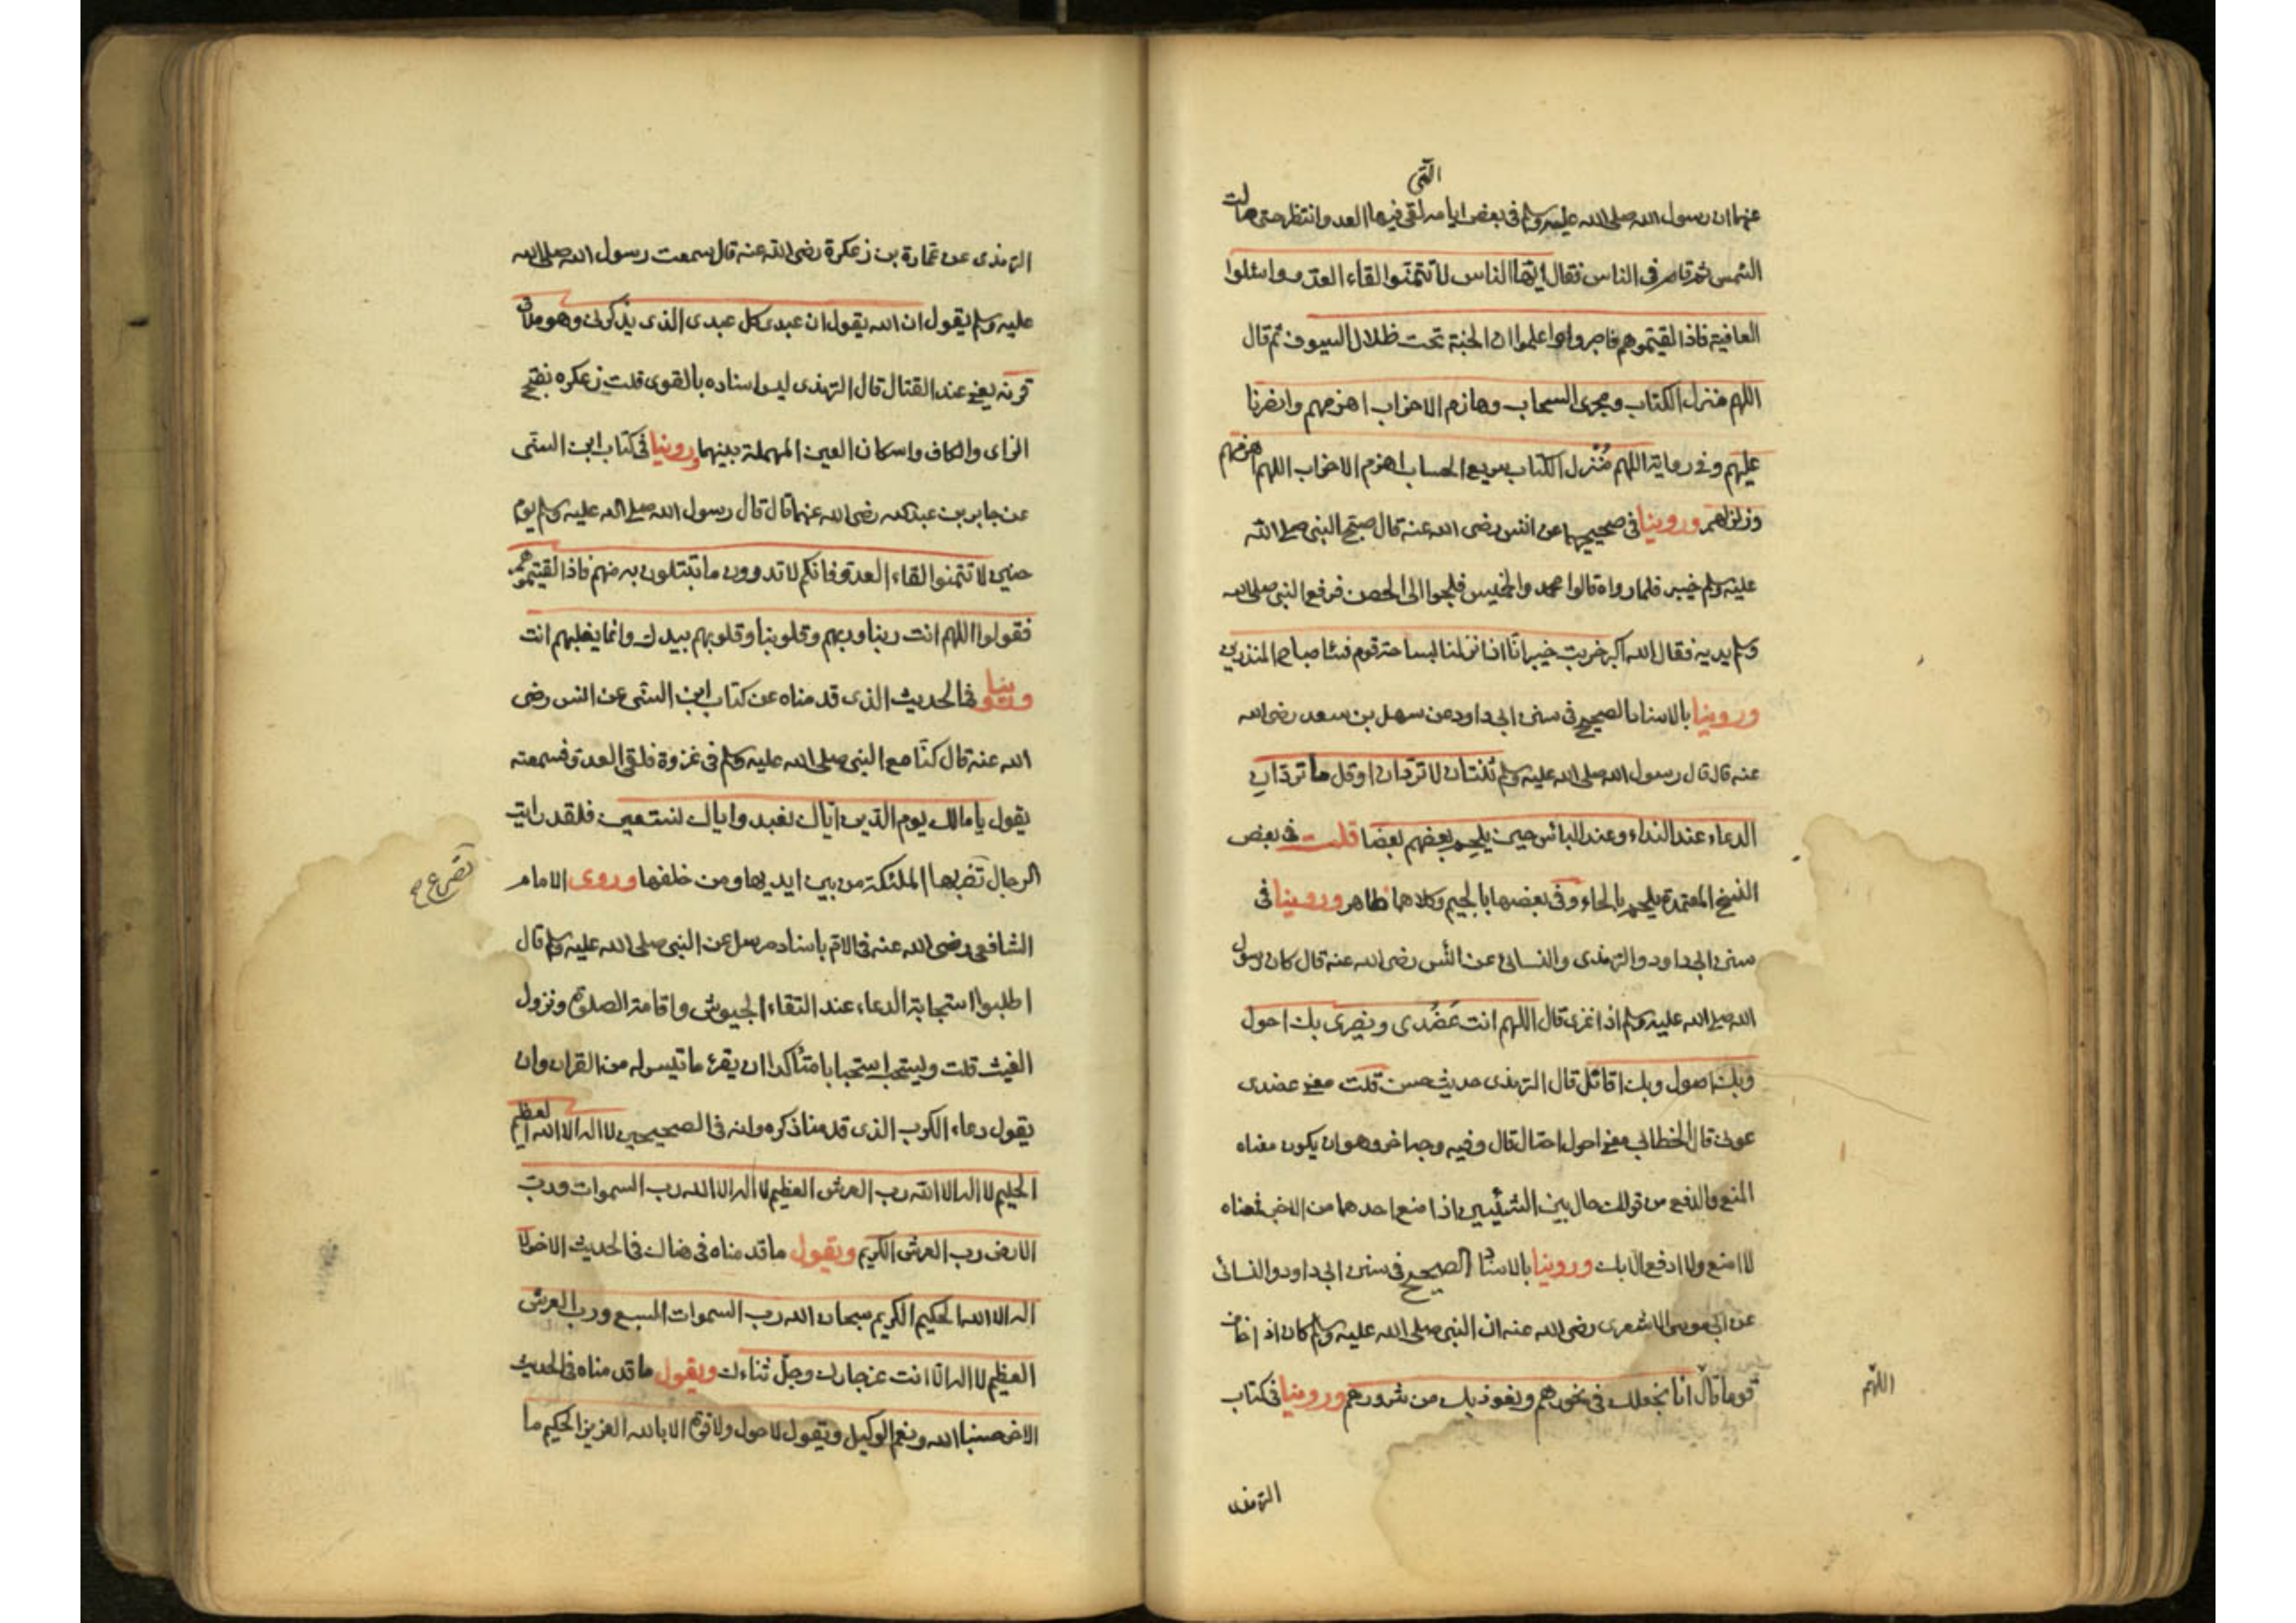 التي
عنهما ان رسول الله صلى الله عليه وسلم في بعض ايامه لقي فيها العدو انتظر حتى مالت
الشمس ثم قام في الناس فقال ايها الناس لا تتمنوا لقاء العدو واسئلوا
العافية فاذا لقيتموهم فاصبروا واعلموا ان الجنة تحت ظلال السيوف ثم قال
اللهم منزل الكتاب ومجرى السحاب وهازم الاحزاب اهزمهم وانصرنا
عليهم وفي رواية اللهم مُنزل الكتاب سريع الحساب اهزم الاحزاب اللهم اهزمهم
وزلزلهم وروينا في صحيحيهما عن انس رضى الله عنه قال صبّح النبي صلى الله
عليه وسلم خيبر فلما رواه قالوا محمد والخميس فلجوا الى الحصن فرفع النبي صلى الله
وسلم يديه فقال الله اكبر خربت خيبر انّا اذا نزلنا بساحة قوم فساء صباح المنذرين
وروينا بالاسناد الصحيح في سنن ابي داود عن سهل بن سعد رضى الله
عنه قال قال رسول الله صلى الله عليه وسلم ثنتان لا تردّان او قل ما تردّان
الدعاء عند النداء وعند البأس حين يلجم بعضهم بعضا قلت في بعض
النسخ المعتمدة يلحم بالحاء وفي بعضها بالجيم وكلاهما ظاهر وروينا في
سنن ابي داود والترمذى والنسائى عن انس رضى الله عنه قال كان رسول
الله صلى الله عليه وسلم اذا غزى قال اللهم انت عَضُدى ونصيرى بك احول
وبك اصول وبك اقاتل قال الترمذى حديث حسن قلت معنى عضدى
عونى قال الخطابى معنى احول احتال قال وفيه وجه اخر وهو ان يكون معناه
المنع والدفع من قولك حال بين الشيئين اذا منع احدهما من الاخر فمعناه
لا امنع ولا ادفع الا بك وروينا بالاسناد الصحيح في سنن ابي داود والنسائى
عن ابي موسى الاشعرى رضى الله عنه ان النبي صلى الله عليه وسلم كان اذا خاف
قوما قال انا نجعلك في نحورهم ونعوذ بك من شرورهم وروينا في كتاب
اللهم
الترمذى
الترمذى عن عمارة بن زعكرة رضى الله عنه قال سمعت رسول الله صلى الله
عليه وسلم يقول ان الله يقول ان عبدى كل عبدى الذى يذكرنى وهو ملاق
قرنه يعنى عند القتال قال الترمذى ليس اسناده بالقوى قلت زعكره بفتح
الزاى والكاف واسكان العين المهملة بينهما وروينا في كتاب ابن السنى
عن جابر بن عبد الله رضى الله عنهما قال قال رسول الله صلى الله عليه وسلم يوم
حنين لا تتمنوا لقاء العدوّ فانكم لا تدرون ما تبتلون به منهم فاذا لقيتموهم
فقولوا اللهم انت ربنا وربهم وقلوبنا وقلوبهم بيدك وانما يغلبهم انت
وروينا في الحديث الذى قدمناه عن كتاب ابن السنى عن انس رضى
الله عنه قال كنّا مع النبي صلى الله عليه وسلم في غزوة فلقى العدوّ فسمعته
يقول يا مالك يوم الدّين ايّاك نعبد واياك نستعين فلقد رايت
الرجال تضربها الملئكة من بين ايديها ومن خلفها وروى الامام
تصرع صح
الشافعى رضى الله عنه في الام باسناد مرسل عن النبي صلى الله عليه وسلم قال
اطلبوا استجابة الدعاء عند التقاء الجيوش واقامة الصلوة ونزول
الغيث قلت ويستحب استحبابا متاكدا ان يقرء ما تيسر له من القران وان
يقول دعاء الكرب الذى قدمنا ذكره وانه في الصحيحين لا اله الا الله العظيم
الحليم لا اله الا الله رب العرش العظيم لا اله الا الله رب السموات وربّ
الارض رب العرش الكريم ويقول ما قدمناه في هناك في الحديث الاخر لا
اله الا الله الحكيم الكريم سبحان الله رب السموات السبع ورب العرش
العظيم لا اله الّا انت عز جارك وجلّ ثناءك ويقول ما قدمناه في الحديث
الاخر حسبنا الله ونعم الوكيل ويقول لا حول ولا قوّة الا بالله العزيز الحكيم ما